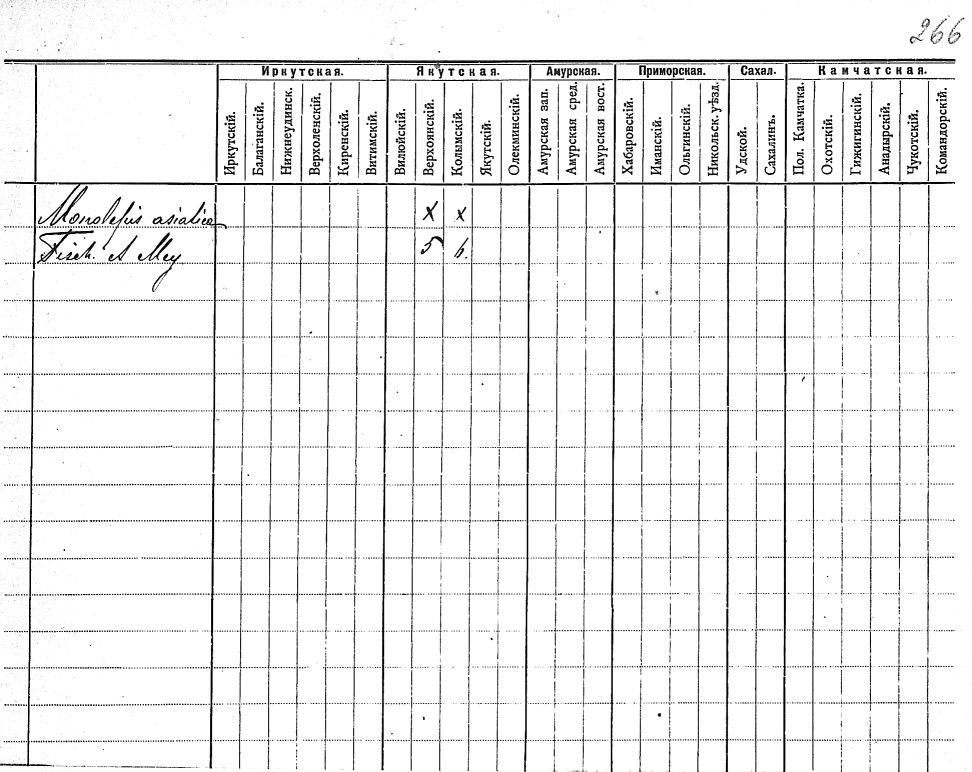 266
Иркутская. Якутская. Амурская. Приморская. Сахал. Камчатская.
Иркутскій. Балаганскій. Нижнеудинск. Верхоленскій. Киренскій. Витимскій. Вилюйскій. Верхоянскій. Колымскій. Якутскій. Олекминскій. Амурская зап. Амурская сред. Амурская вост. Хабаровскій. Иманскій. Ольгинскій. Никольск. уѣзд. Удской. Сахалинъ. Пол. Камчатка. Охотскій. Гижигинскій. Анадырскій. Чукотскій. Командорскій.
Monolepis asiatica x x
Fisch. et Mey 5 6.